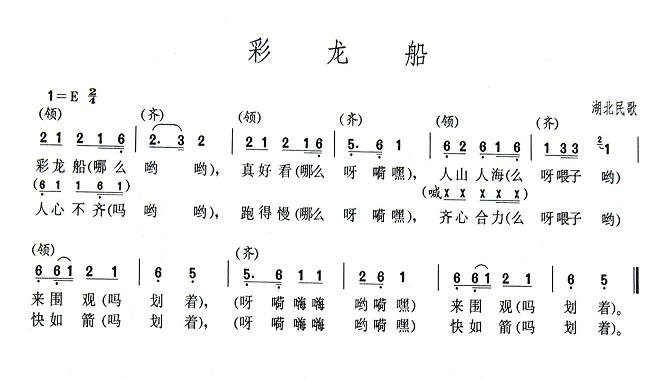 彩 龙 船
1=E 2/4
湖北民歌
(领) (齐) (领) (齐) (领) (齐)
2 1 2 1 6 | 2. 3 2 | 2 1 2 1 6 | 5. 6 1 | 6 2 6 1 6 | 1 3 3 2 1 |
彩龙船(哪么 哟 哟), 真好看(哪么 呀 嗬嘿), 人山人海(么 呀喂子 哟)
(6 1 1 6 1) (喊X X X X X)
人心不齐(吗 哟 哟), 跑得慢(么 呀 嗬嘿), 齐心合力(么 呀喂子 哟)
(领) (齐)
6 6 1 2 1 | 6 5 | 5. 6 1 1 | 2 6 1 | 6 6 1 2 1 | 6 5 ‖
来围观(吗 划 着), (呀 嗬嗨嗨 哟嗬嘿) 来围观(吗 划 着)。
快如箭(吗 划 着), (呀 嗬嗨嗨 哟嗬嘿) 快如箭(吗 划 着)。